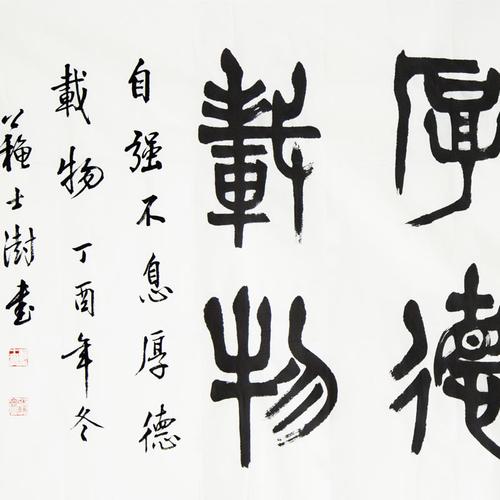 厚德
載物
自强不息厚德
載物丁酉年冬
蘇士澍書